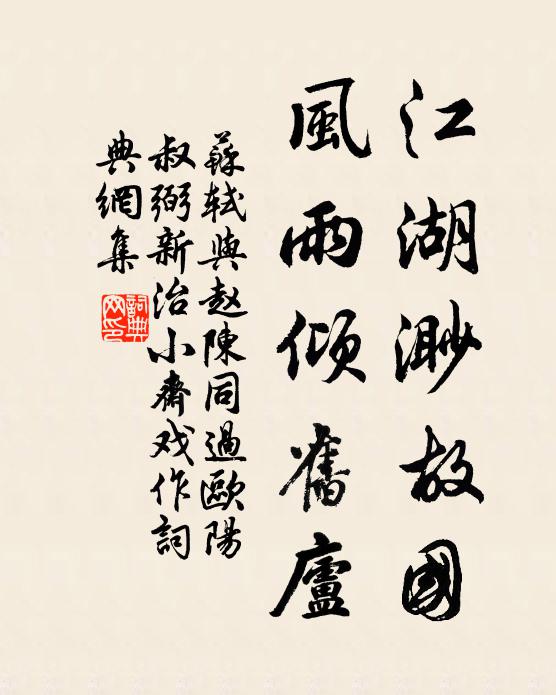 江湖渺故國
風雨傾舊廬
蘇軾與赵陳同過歐陽
叔弼新治小齋戏作詞
典網集
詞典网印